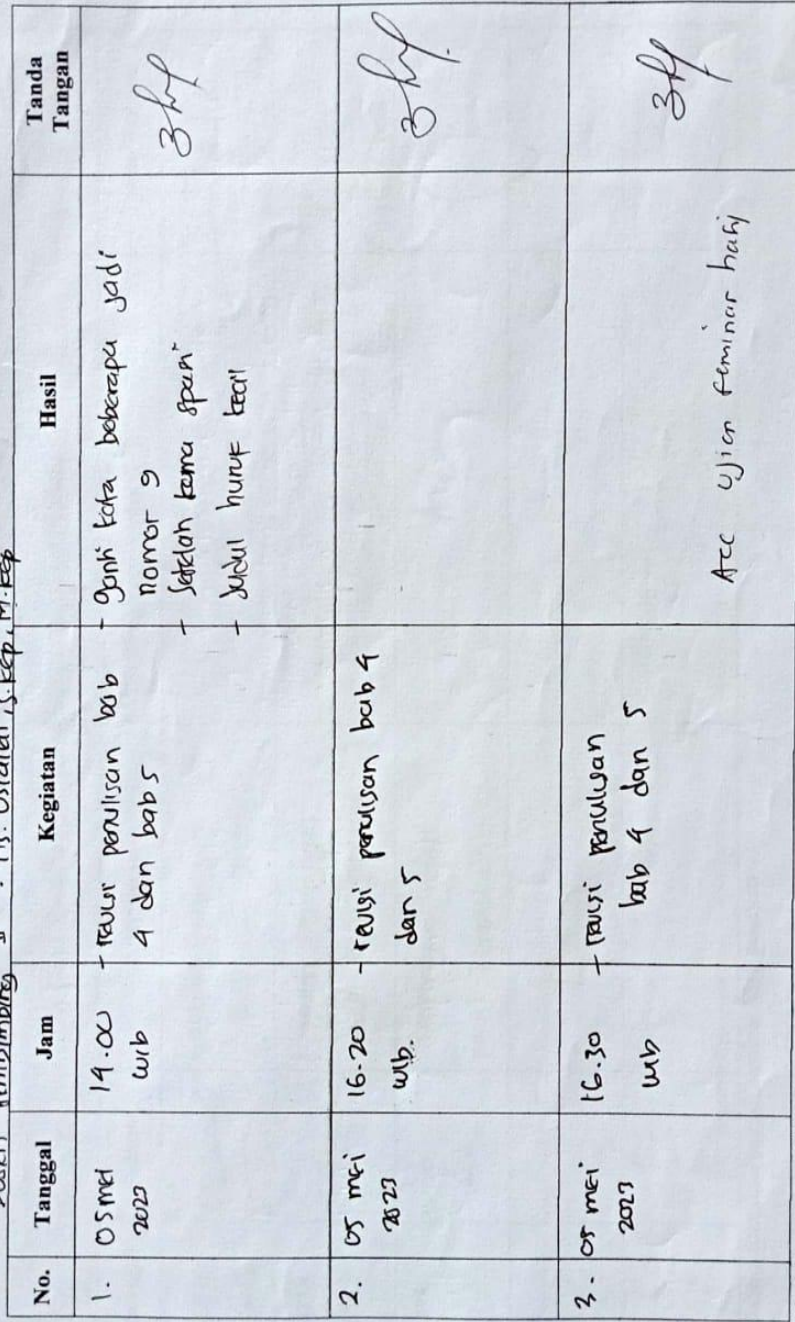 Pembimbing
S.Kep, M.Kep
No.
Tanggal
Jam
Kegiatan
Hasil
Tanda
Tangan
1.
05 mei
2023
14.00
wib
- revisi penulisan bab
4 dan bab 5
- ganti kata beberapa jadi
nomor 9
- setelah koma spasi
- Judul huruf kecil
2.
05 mei
2023
16.20
wib.
- revisi penulisan bab 4
dan 5
3.
05 mei
2023
16.30
wib
- revisi penulisan
bab 4 dan 5
Acc ujian seminar hasil